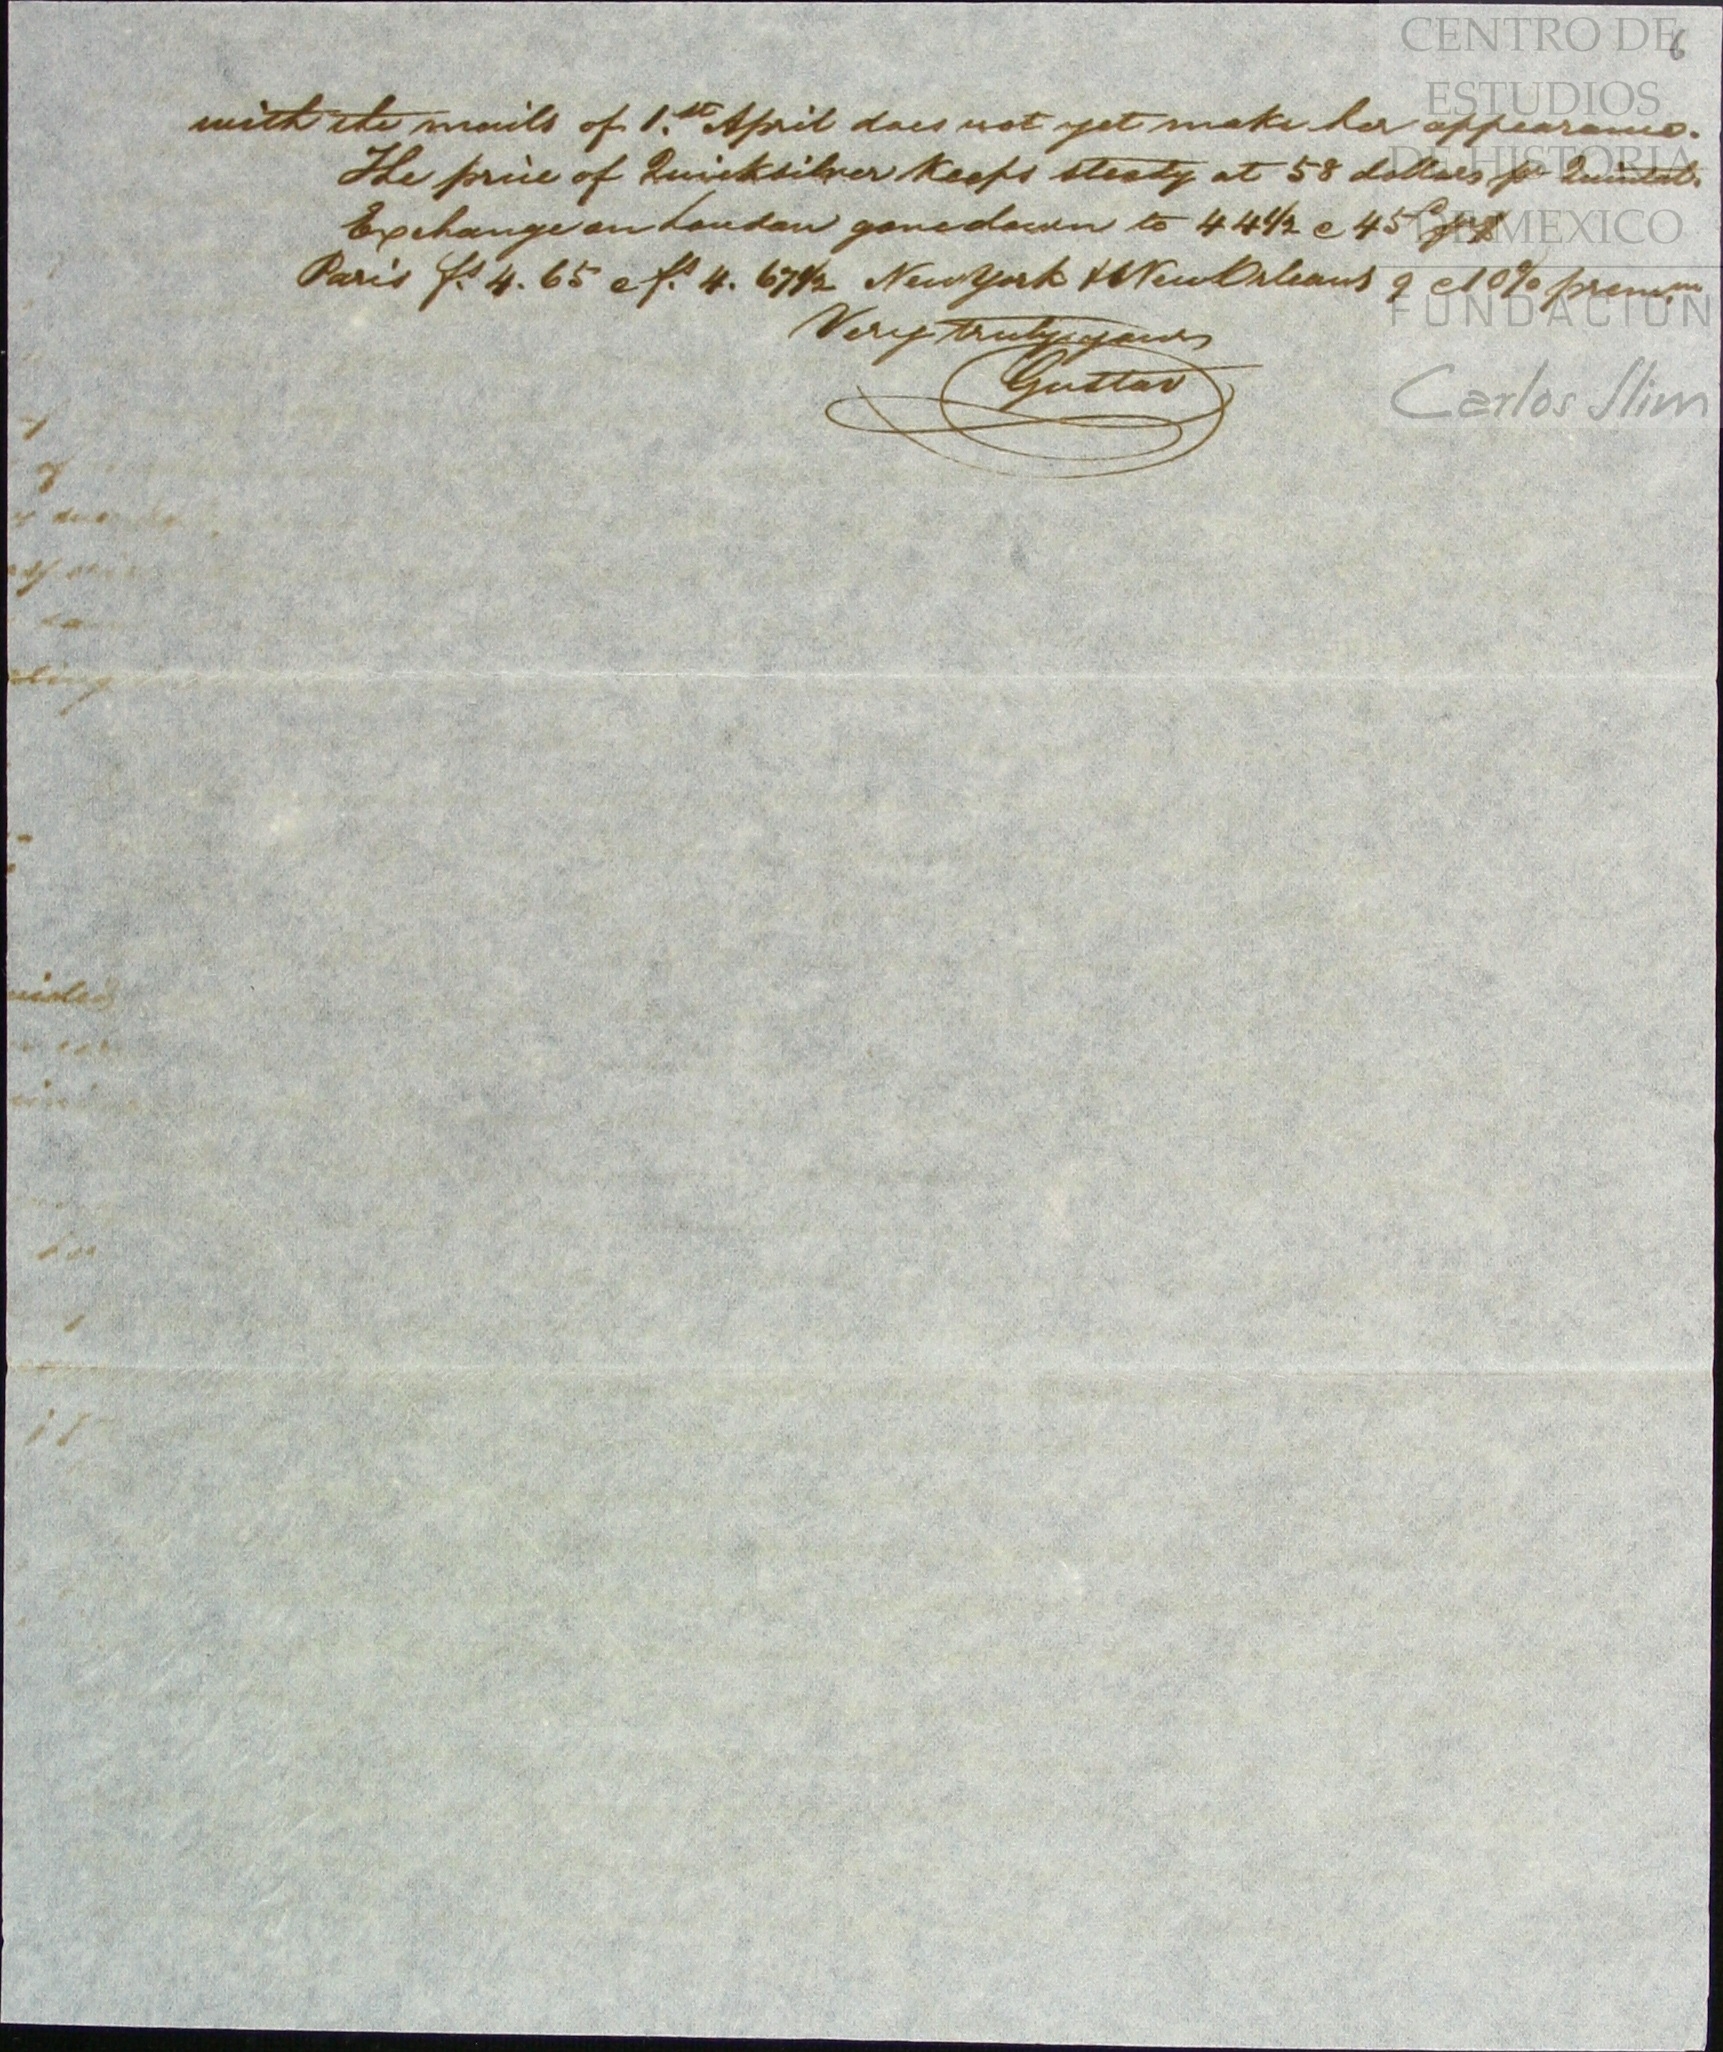 6
with the mails of 1.st April does not yet make her appearance.
The price of Quicksilver keeps steady at 58 dollars pr Quintal.
Exchange on London gone down to 44 1/2 @ 45
Paris fs. 4. 65 @ fs. 4. 67 1/2 New York & New Orleans 9 @ 10% premm
Very truly yours
Gustav
CENTRO DE
ESTUDIOS
DE HISTORIA
DE MEXICO
FUNDACIÓN
Carlos Slim